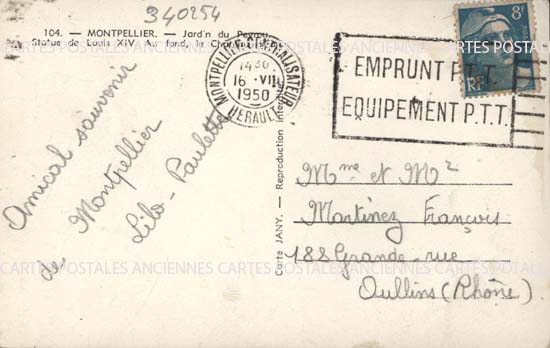 340254
104. — MONTPELLIER. — Jardin du Peyrou
Statue de Louis XIV. Au fond, le Château
MONTPELLIER CENTRALISATEUR
1430
16 · VIII
1950
HERAULT
EMPRUNT P.T.T.
EQUIPEMENT P.T.T.
8f
RF
Amical souvenir
de Montpellier
Lilo - Paulette
Carte JANY. — Reproduction Interdite
Mme et Mr
Martinez François
188 Grande-rue
Oullins (Rhône)
CARTES POSTALES ANCIENNES CARTES POSTALES ANCIENNES CARTES POSTALES